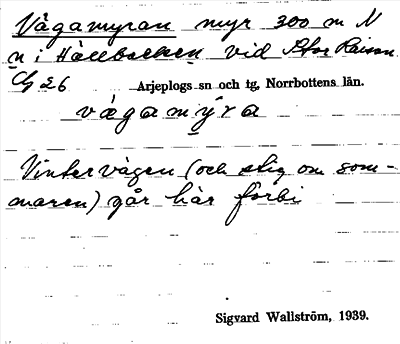 Vågamyran myr 300 m N
n i Hällbacken vid Stor Raisan
Cg 26 Arjeplogs sn och tg, Norrbottens län.
vágamýra
Vintervägen (och stig om som-
maren) går här förbi
Sigvard Wallström, 1939.